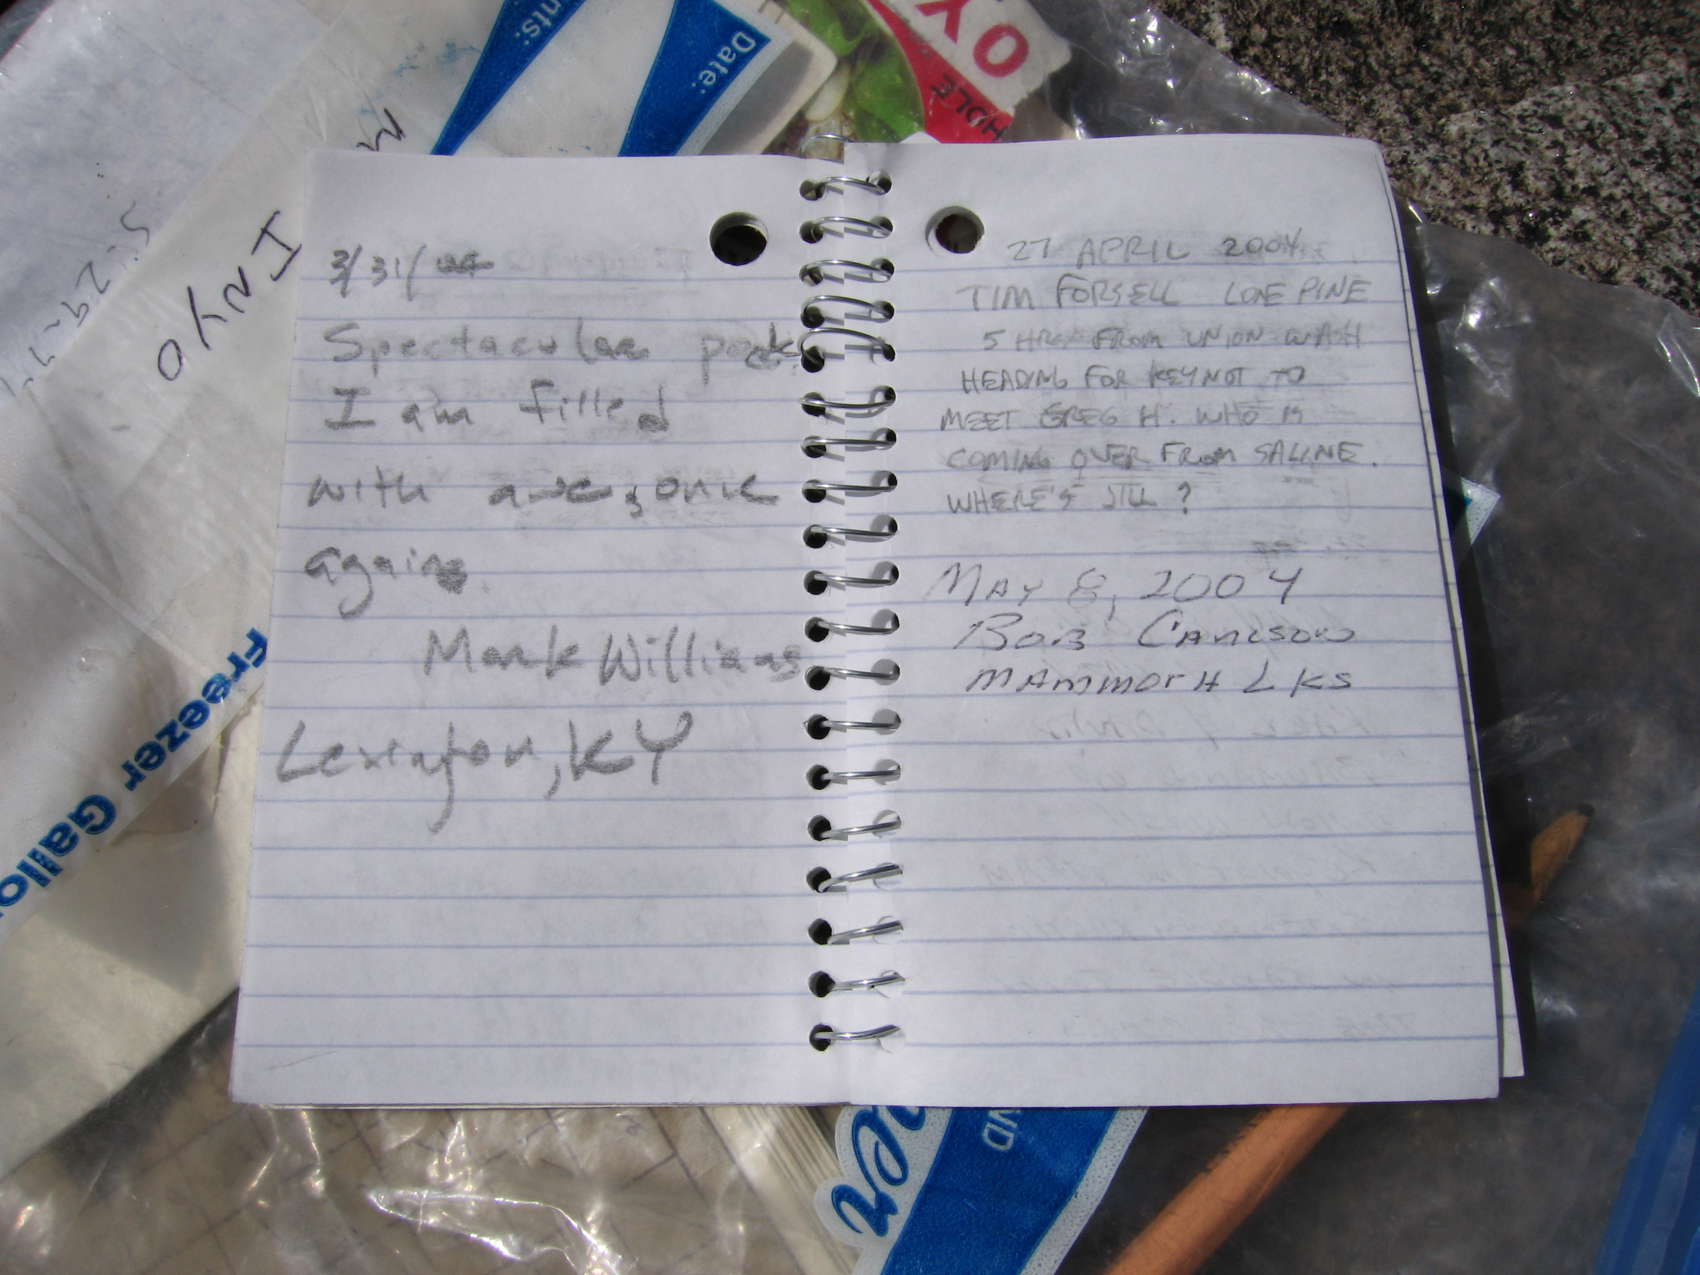 3/31/04
Spectacular peak.
I am filled
with awe, once
again.
Mark Williams
Lexington, KY
27 APRIL 2004
TIM FORSELL LONE PINE
5 HRS FROM UNION WASH
HEADING FOR KEYNOT TO
MEET GREG H. WHO IS
COMING OVER FROM SALINE.
WHERE'S JILL?
MAY 8, 2004
BOB CARLSON
MAMMOTH LKS
INYO
nts:
Date:
OY
HOLE
Freezer Gallo
ner
ND